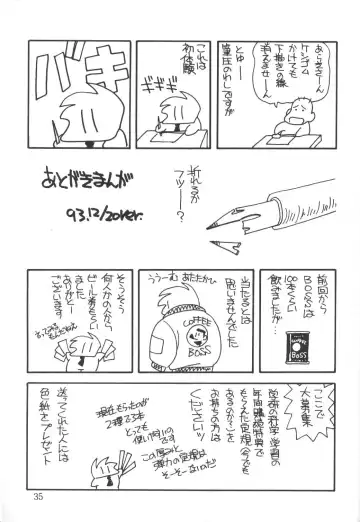 あらきさーん
ケシゴム
かけても
下描きの線
消えませーん
とゆー
筆圧のわしですが
これは
初体験
ギギギ
バキ
折れるか
フツー?
あとがきまんが
93.12/20ver.
前回から
BOSSは
100本くらい
飲みましたが…
COFFEE
BOSS
当たるとは
思いませんでした
ううーむ
あたたかい
COFFEE
BOSS
そうそう
何人かの人から
ビール券もらい
ました
ありがとー
ございます
ここで
大募集
学研の科学 学習の
年間購読特典で
もらえた定規(今でも
あるのか?)を
お持ちの方は
ください
現在もらったのが
2種で3本
とっても
使い易いのです
この厚みと
弾力の定規は
そーそーないのだ
送ってくれた人には
色紙をプレゼント
35